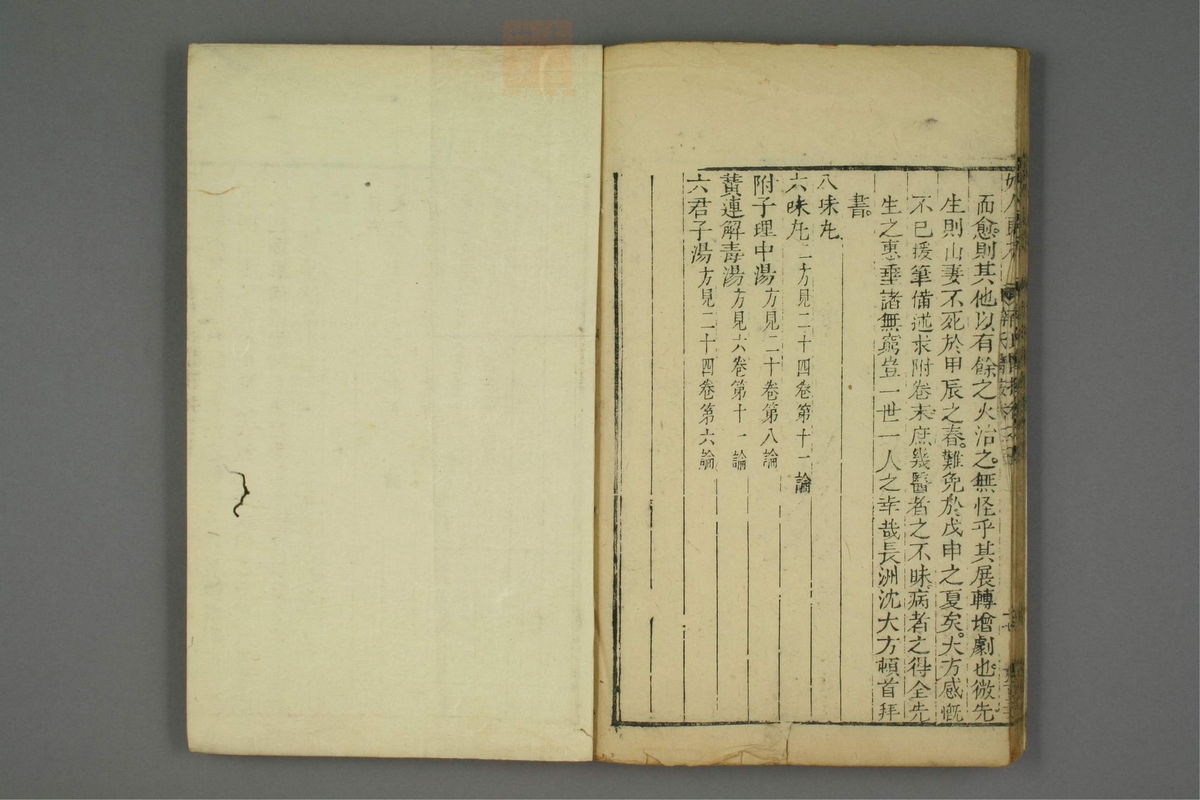 而愈則其他以有餘之火治之無怪乎其展轉增劇也微先
生則山妻不死於甲辰之春難免於戊申之夏矣大方感慨
不已援筆備述求附卷末庶幾醫者之不昧病者之得全先
生之惠垂諸無窮豈一世一人之幸哉長洲沈大方頓首拜
書
八味丸
六味丸二方見二十四卷第十一論
附子理中湯方見二十卷第八論
黃連解毒湯方見六卷第十一論
六君子湯方見二十四卷第六論